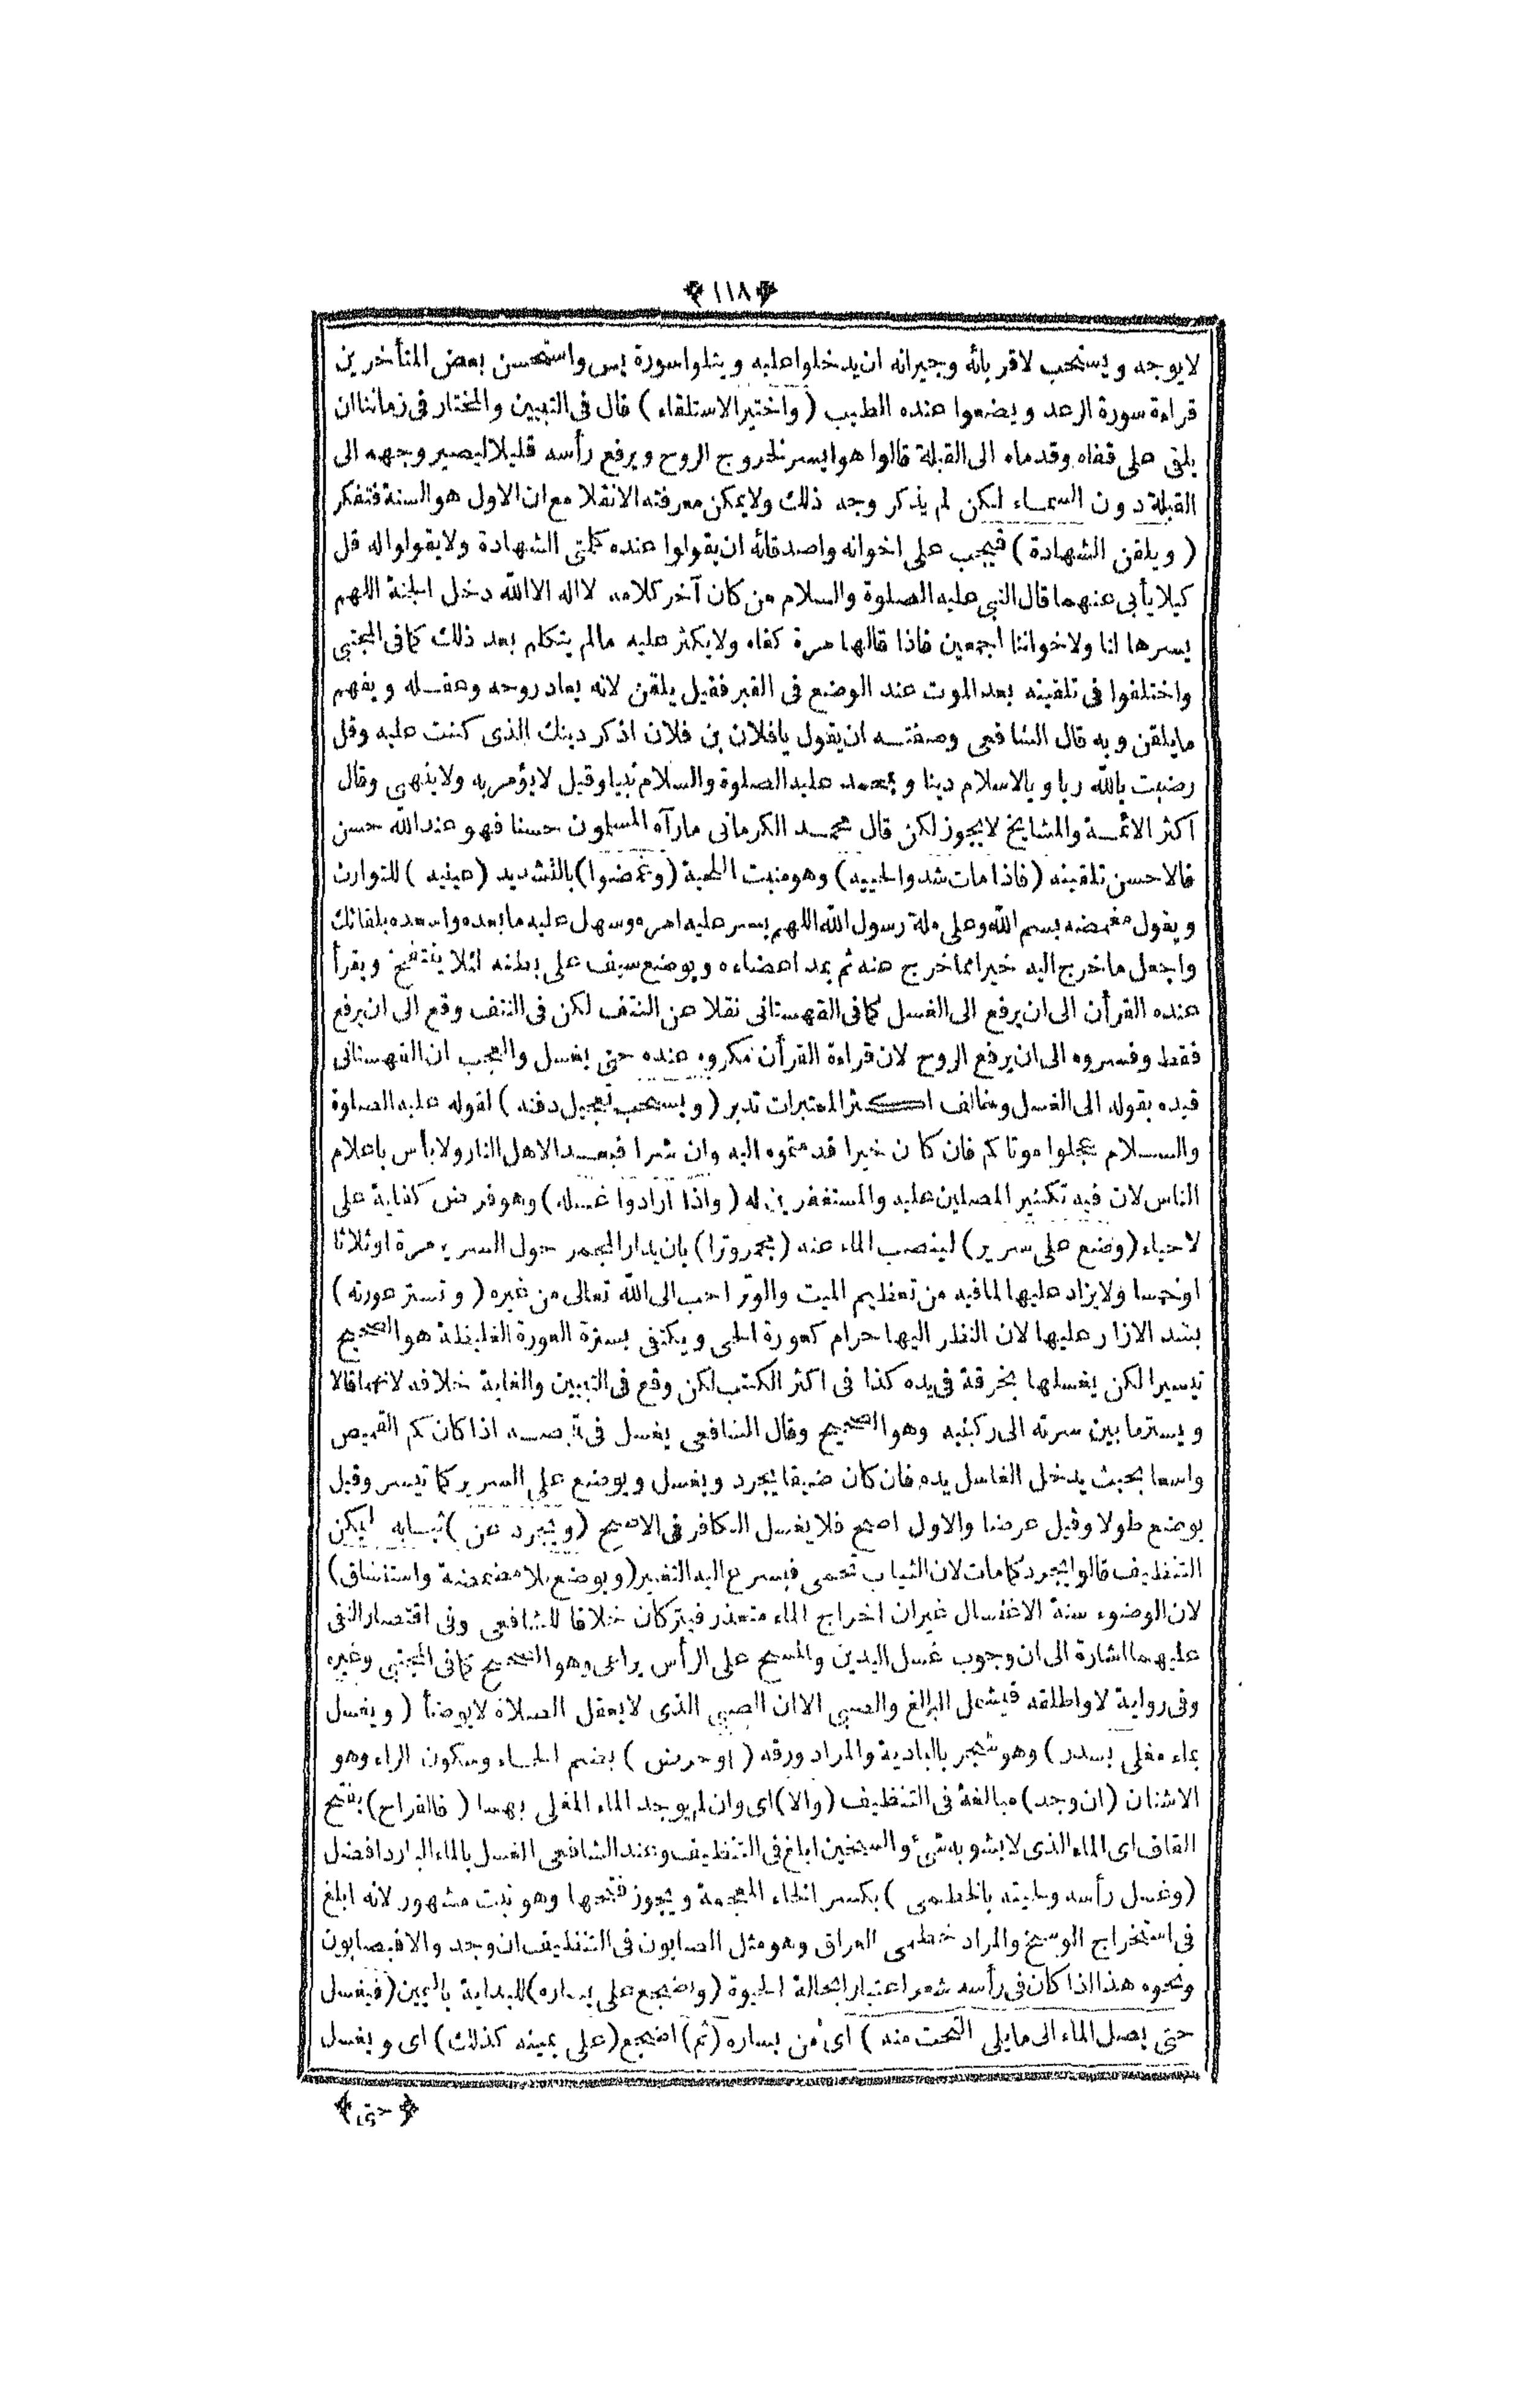 ﴿ ١١٨ ﴾
لا يوجه ويستحب لاقربائه وجيرانه ان يدخلوا عليه ويتلوا سورة يس واستحسن بعض المتأخرين
قراءة سورة الرعد ويضعوا عنده الطيب ( واختير الاستلقاء ) قال فى التبيين والمختار فى زماننا ان
يلقى على قفاه وقدماه الى القبلة قالوا هو ايسر لخروج الروح ويرفع رأسه قليلا ليصير وجهه الى
القبلة دون السماء لكن لم يذكر وجه ذلك ولا يمكن معرفته الا نقلا مع ان الاول هو السنة فتفكر
( ويلقن الشهادة ) فيجب على اخوانه واصدقائه ان يقولوا عنده كلتى الشهادة ولا يقولوا له قل
كيلا يأبى عنهما قال النبى عليه الصلوة والسلام من كان آخر كلامه لا اله الا الله دخل الجنة اللهم
يسرها لنا ولاخواننا اجمعين فاذا قالها مرة كفاه ولا يكثر عليه مالم يتكلم بعد ذلك كما فى المجتبى
واختلفوا فى تلقينه بعد الموت عند الوضع فى القبر فقيل يلقن لانه يعاد روحه وعقله ويفهم
ما يلقن وبه قال الشافعى وصفته ان يقول يا فلان بن فلان اذكر دينك الذى كنت عليه وقل
رضيت بالله ربا وبالاسلام دينا وبمحمد عليه الصلوة والسلام نبيا وقيل لا يؤمر به ولا ينهى وقال
اكثر الائمة والمشايخ لا يجوز لكن قال محمد الكرمانى ما رآه المسلمون حسنا فهو عند الله حسن
فالاحسن تلقينه ( فاذا مات شدوا لحييه ) وهو منبت اللحية ( وغمضوا ) بالتشديد ( عينيه ) للتوارث
ويقول مغمضه بسم الله وعلى ملة رسول الله اللهم يسر عليه امره وسهل عليه ما بعده واسعده بلقائك
واجعل ما خرج اليه خيرا مما خرج عنه ثم يمد اعضاءه ويوضع سيف على بطنه لئلا ينتفخ ويقرأ
عنده القرأن الى ان يرفع الى الغسل كما فى القهستانى نقلا عن النتف لكن فى النتف وقع الى ان يرفع
فقط وفسروه الى ان يرفع الروح لان قراءة القرأن مكروه عنده حتى يغسل والعجب ان القهستانى
قيده بقوله الى الغسل وخالف اكثر المعتبرات تدبر ( ويستحب تعجيل دفنه ) لقوله عليه الصلوة
والسلام عجلوا موتاكم فان كان خيرا قدمتموه اليه وان شرا فبعدا لاهل النار ولا بأس باعلام
الناس لان فيه تكثير المصلين عليه والمستغفرين له ( واذا ارادوا غسله ) وهو فرض كفاية على
لاحياء ( وضع على سرير ) لينصب الماء عنه ( مجمر وترا ) بان يدار المجمر حول السرير مرة او ثلاثا
او خمسا ولا يزاد عليها لما فيه من تعظيم الميت والوتر احب الى الله تعالى من غيره ( وتستر عورته )
بشد الازار عليها لان النظر اليها حرام كعورة الحى ويكتفى بسترة العورة الغليظة هو الصحيح
تيسيرا لكن يغسلها بخرقة فى يده كذا فى اكثر الكتب لكن وقع فى التبيين والغاية خلافه لانهما قالا
ويستر ما بين سرته الى ركبتيه وهو الصحيح وقال الشافعى يغسل فى قميصه اذا كان كم القميص
واسعا بحيث يدخل الغاسل يده فان كان ضيقا يجرد ويغسل ويوضع على السرير كما تيسر وقيل
يوضع طولا وقيل عرضا والاول اصح فلا يغسل الكافر فى الاصح ( ويجرد عن ) ثيابه ليمكن
التنظيف قالوا يجرد كما مات لان الثياب تحمى فيسرع اليه التغير ( ويوضع بلا مضمضة واستنشاق )
لان الوضوء سنة الاغتسال غير ان اخراج الماء متعذر فيتركان خلافا للشافعى وفى اقتصار النفى
عليهما اشارة الى ان وجوب غسل اليدين والمسح على الرأس يراعى وهو الصحيح كما فى المجتبى وغيره
وفى رواية لا واطلقه فيشمل البالغ والصبى الا ان الصبى الذى لا يعقل الصلاة لا يوضأ ( ويغسل
بماء مغلى بسدر ) وهو شجر بالبادية والمراد ورقه ( او حرض ) بضم الحاء وسكون الراء وهو
الاشنان ( ان وجد ) مبالغة فى التنظيف ( والا ) اى وان لم يوجد الماء المغلى بهما ( فالقراح ) بفتح
القاف اى الماء الذى لا يشوبه شئ والسخين ابلغ فى التنظيف وعند الشافعى الغسل بالماء البارد افضل
( وغسل رأسه ولحيته بالخطمى ) بكسر الخاء المعجمة ويجوز فتحها وهو نبت مشهور لانه ابلغ
فى استخراج الوسخ والمراد خطمى العراق وهو مثل الصابون فى التنظيف ان وجد والا فبصابون
ونحوه هذا اذا كان فى رأسه شعر اعتبارا بحالة الحيوة ( واضجع على يساره ) للبداية باليمين ( فيغسل
حتى يصل الماء الى ما يلى التحت منه ) اى من يساره ( ثم ) اضجع ( على يمينه كذلك ) اى ويغسل
﴿ حتى ﴾